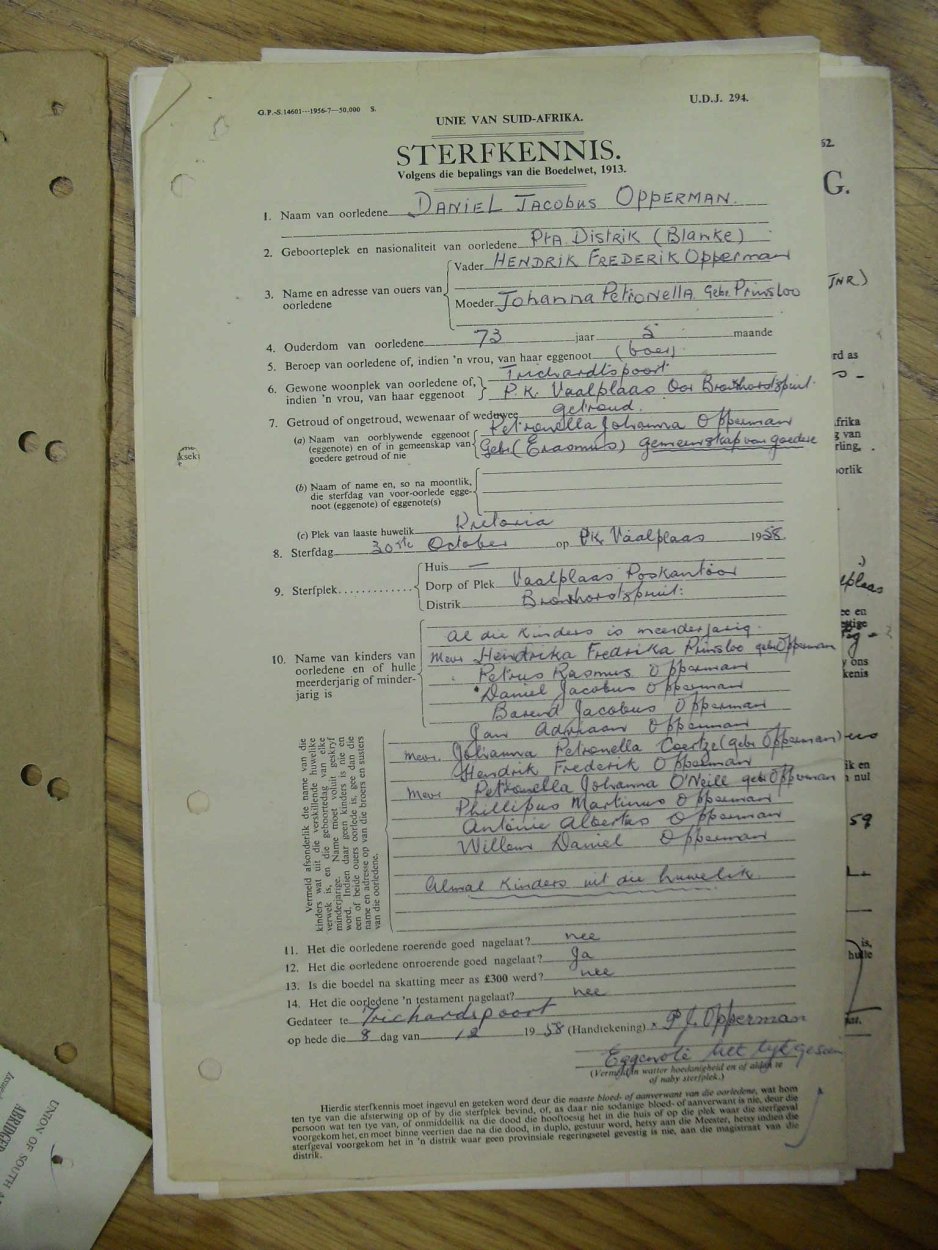 G.P.-S.14601—1956-7—50,000 S.
U.D.J. 294.
UNIE VAN SUID-AFRIKA.
STERFKENNIS.
Volgens die bepalings van die Boedelwet, 1913.
1. Naam van oorledene DANIEL JACOBUS OPPERMAN.
2. Geboorteplek en nasionaliteit van oorledene Pta Distrik (Blanke)
3. Name en adresse van ouers van oorledene
Vader HENDRIK FREDERIK Opperman
Moeder Johanna Petronella Gebr. Prinsloo
4. Ouderdom van oorledene 73 jaar 5 maande
5. Beroep van oorledene of, indien 'n vrou, van haar eggenoot (boer).
6. Gewone woonplek van oorledene of, indien 'n vrou, van haar eggenoot
Trichardtspoort
P.K. Vaalplaas Oor Bronkhorstspruit.
7. Getroud of ongetroud, wewenaar of weduwee getroud.
(a) Naam van oorblywende eggenoot
(eggenote) en of in gemeenskap van
goedere getroud of nie
Petronella Johanna Opperman
Gebr (Erasmus) gemeenskap van goedere
(b) Naam of name en, so na moontlik,
die sterfdag van voor-oorlede egge-
noot (eggenote) of eggenote(s)
(c) Plek van laaste huwelik Pretoria
8. Sterfdag 30ste October op P.K. Vaalplaas 1958.
9. Sterfplek
Huis —
Dorp of Plek Vaalplaas Poskantoor
Distrik Bronkhorstspruit:
10. Name van kinders van
oorledene en of hulle
meerderjarig of minder-
jarig is
Al die kinders is meerderjarig.
Mevr Hendrika Fredrika Prinsloo gebr Opperman
Petrus Rasmus Opperman
Daniel Jacobus Opperman
Barend Jacobus Opperman
Jan Adriaan Opperman
Mevr. Johanna Petronella Coertze (gebr Opperman)
Hendrik Frederik Opperman
Mevr Petronella Johanna O'Neill gebr Opperman
Phillipus Martinus Opperman
Antonie Albertus Opperman
Willem Daniel Opperman
Almal kinders uit die huwelik.
Vermeld afsonderlik die name van die
kinders wat uit die verskillende huwelike
verwek is, en die geboortedag van elke
minderjarige. Name moet voluit geskryf
word. Indien daar geen kinders is nie en
een of beide ouers oorlede is, gee dan die
name en adresse op van die broers en susters
van die oorledene.
11. Het die oorledene roerende goed nagelaat? nee
12. Het die oorledene onroerende goed nagelaat? Ja
13. Is die boedel na skatting meer as £300 werd? nee
14. Het die oorledene 'n testament nagelaat? nee
Gedateer te Trichardspoort
op hede die 8 dag van 12 1958 (Handtekening) P J. Opperman
Eggenote
(Vermeld in watter hoedanigheid en of aldan te
of naby sterfplek.)
Hierdie sterfkennis moet ingevul en geteken word deur die naaste bloed- of aanverwant van die oorledene, wat hom
ten tye van die afsterwing op of by die sterfplek bevind, of, as daar nie sodanige bloed- of aanverwant is nie, deur die
persoon wat ten tye van, of onmiddellik na die dood die hooftoesig het in die huis of op die plek waar die sterfgeval
voorgekom het, en moet binne veertien dae na die dood, in duplo, gestuur word, hetsy aan die Meester, hetsy indien die
sterfgeval voorgekom het in 'n distrik waar geen provinsiale regeringsetel gevestig is nie, aan die magistraat van die
distrik.
UNION OF SOUTH